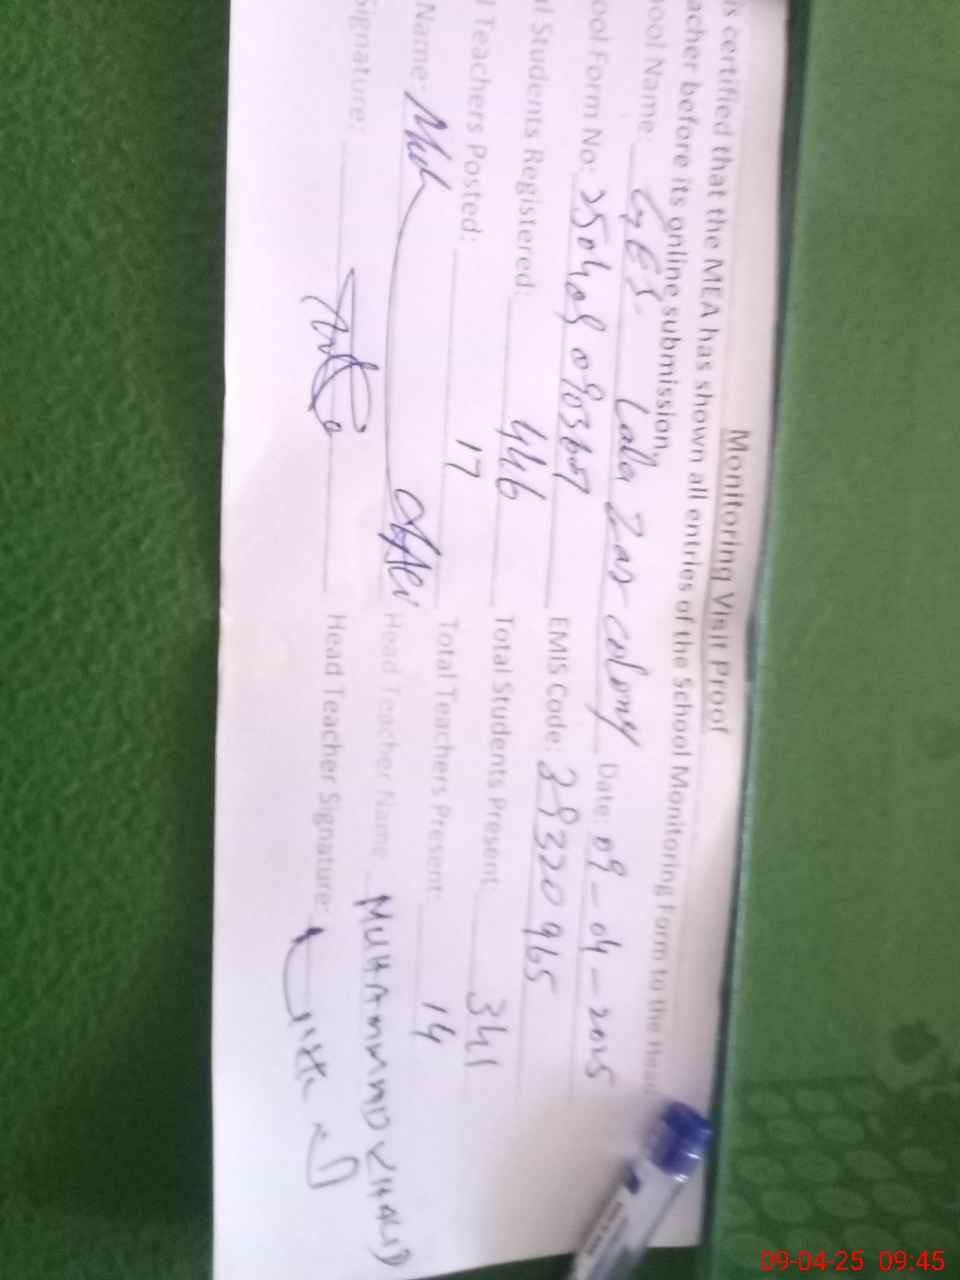 Monitoring Visit Proof
is certified that the MEA has shown all entries of the School Monitoring Form to the Head
acher before its online submission.
ool Name: GES. Lala Zar colony Date: 09-04-2025
ool Form No: EMIS Code: 39320965
l Students Registered: 446 Total Students Present: 341
l Teachers Posted: 17 Total Teachers Present: 14
Name: Head Teacher Name MUHAMMAD KHALID
Signature: Head Teacher Signature:
09-04-25 09:45